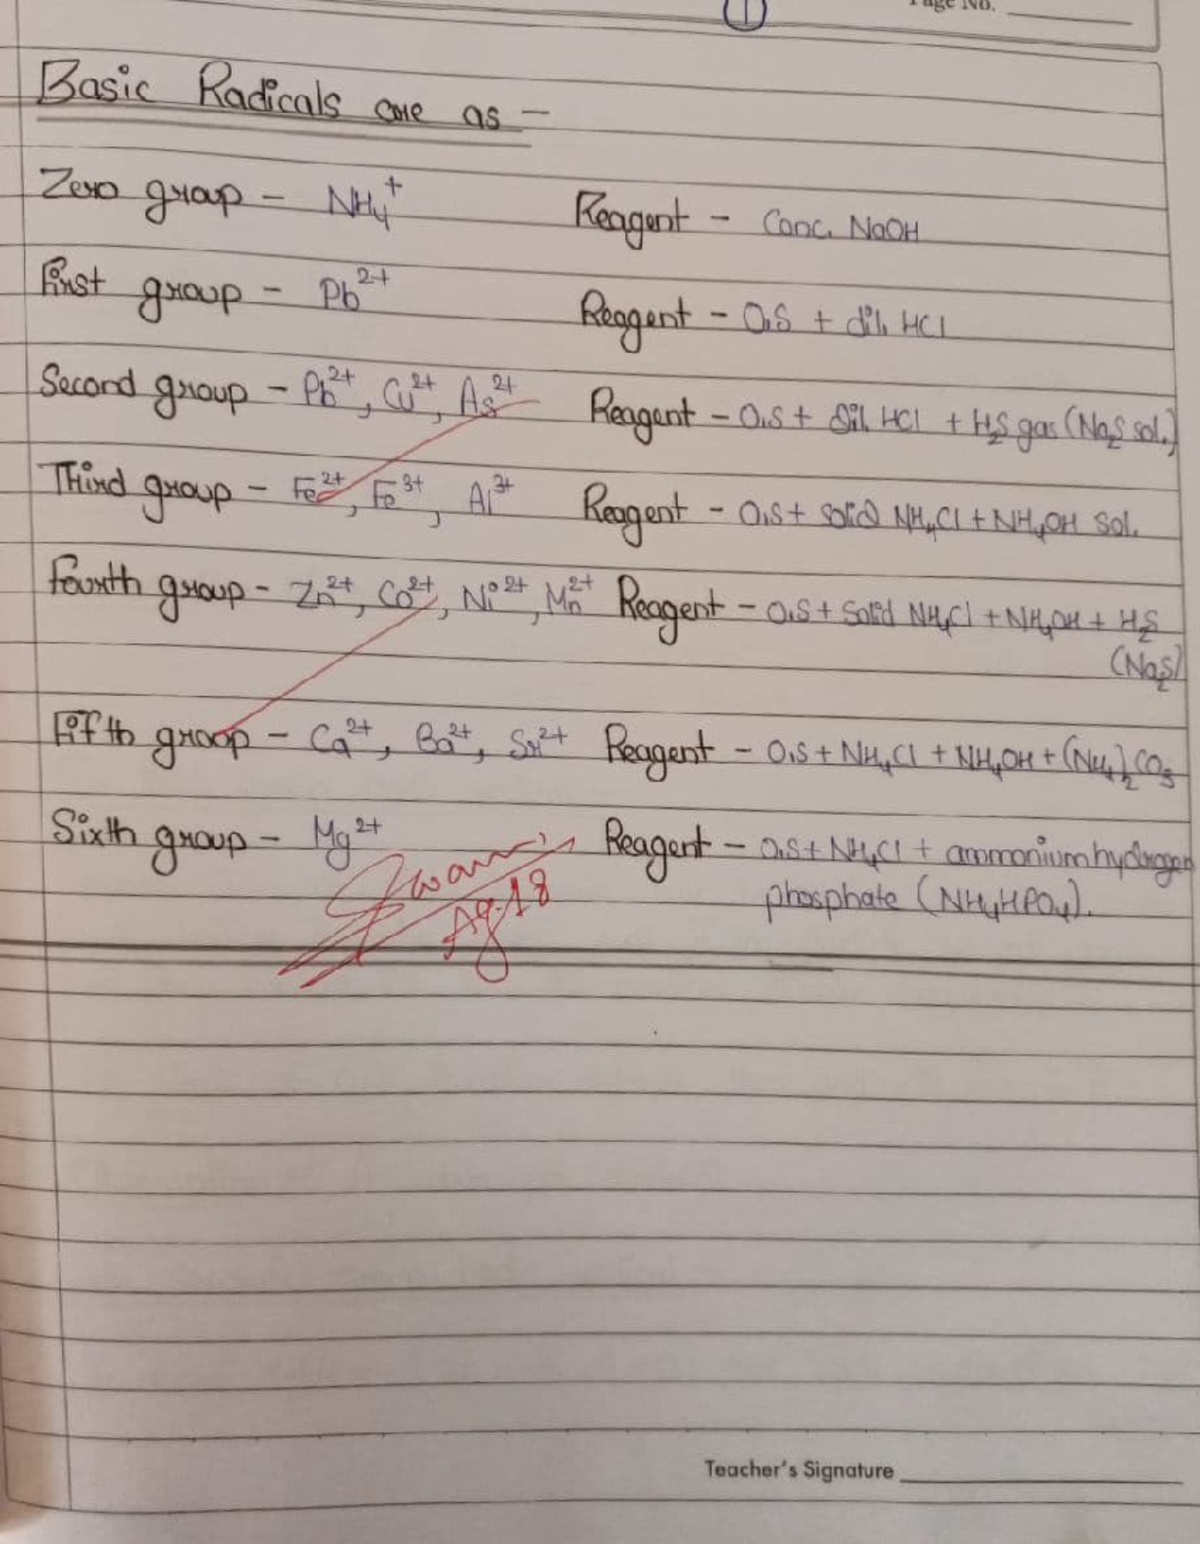 1
Page No.
Basic Radicals are as –
Zero group – NH₄⁺ Reagent – Conc. NaOH
First group – Pb²⁺ Reagent – O.S + dil. HCl
Second group – Pb²⁺, Cu²⁺, As²⁺ Reagent – O.S + Dil. HCl + H₂S gas (Na₂S sol.)
Third group – Fe²⁺, Fe³⁺, Al³⁺ Reagent – O.S + Solid NH₄Cl + NH₄OH Sol.
Fourth group – Zn²⁺, Co²⁺, Ni²⁺, Mn²⁺ Reagent – O.S + Solid NH₄Cl + NH₄OH + H₂S
(Na₂S)
Fifth group – Ca²⁺, Ba²⁺, Sr²⁺ Reagent – O.S + NH₄Cl + NH₄OH + (NH₄)₂CO₃
Sixth group – Mg²⁺ Reagent – O.S + NH₄Cl + ammonium hydrogen
phosphate (NH₄HPO₄).
Teacher's Signature